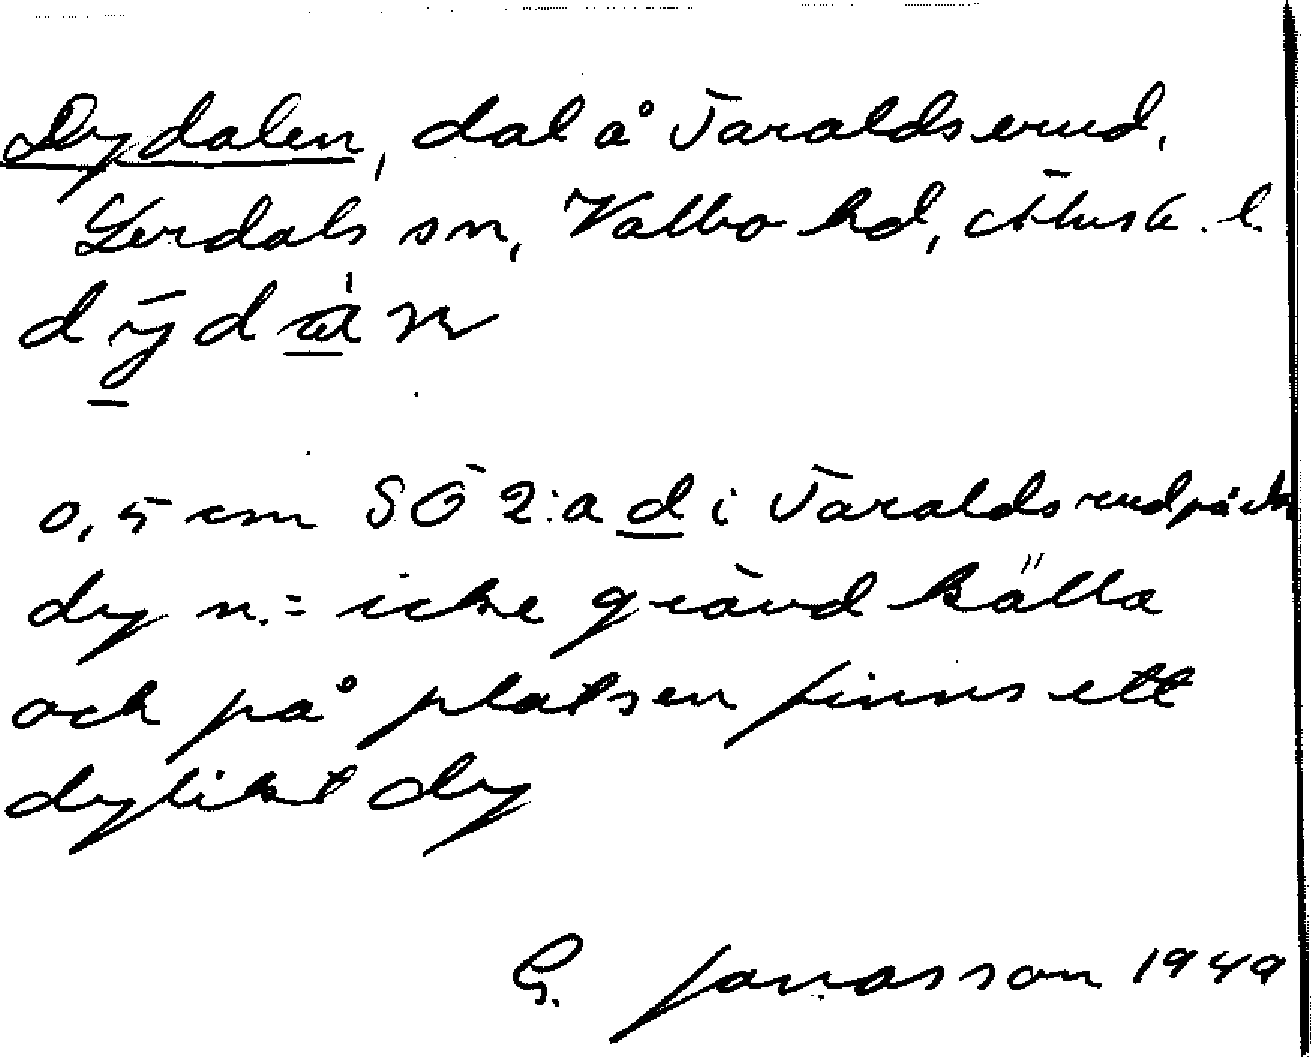 Dydalen, dal å Taraldserud,
Lerdals sn, Valbo hd, Älvsb. l.
dȳdàn
0,5 cm SO 2:a d i Taraldsrud på ek
dy n. = icke grävd källa
och på platsen finns ett
dylikt dy
G. Jonasson 1949